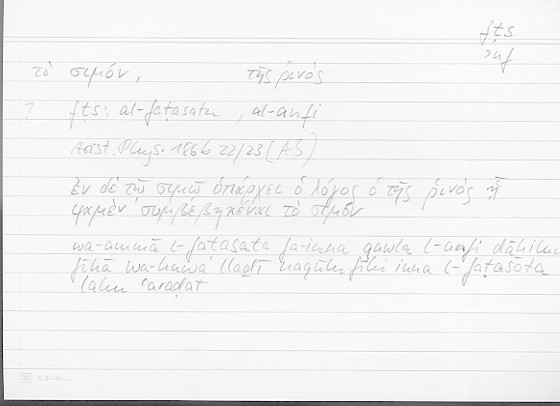 fṭs
ʾnf
τὸ σιμόν, τῆς ῥινός
? fṭs: al-faṭasatu, al-anfi
Arist. Phys. 186b 22/23 (A3)
ἐν δὲ τῷ σιμῷ ὑπάρχει ὁ λόγος ὁ τῆς ῥινὸς ᾗ
φαμὲν συμβεβηκέναι τὸ σιμόν
wa-ammā l-faṭasata fa-inna qawla l-anfi dāḫilun
fīhā wa-huwa lladī naqūlu fīhi inna l-faṭasata
lahu ʿaraḍat